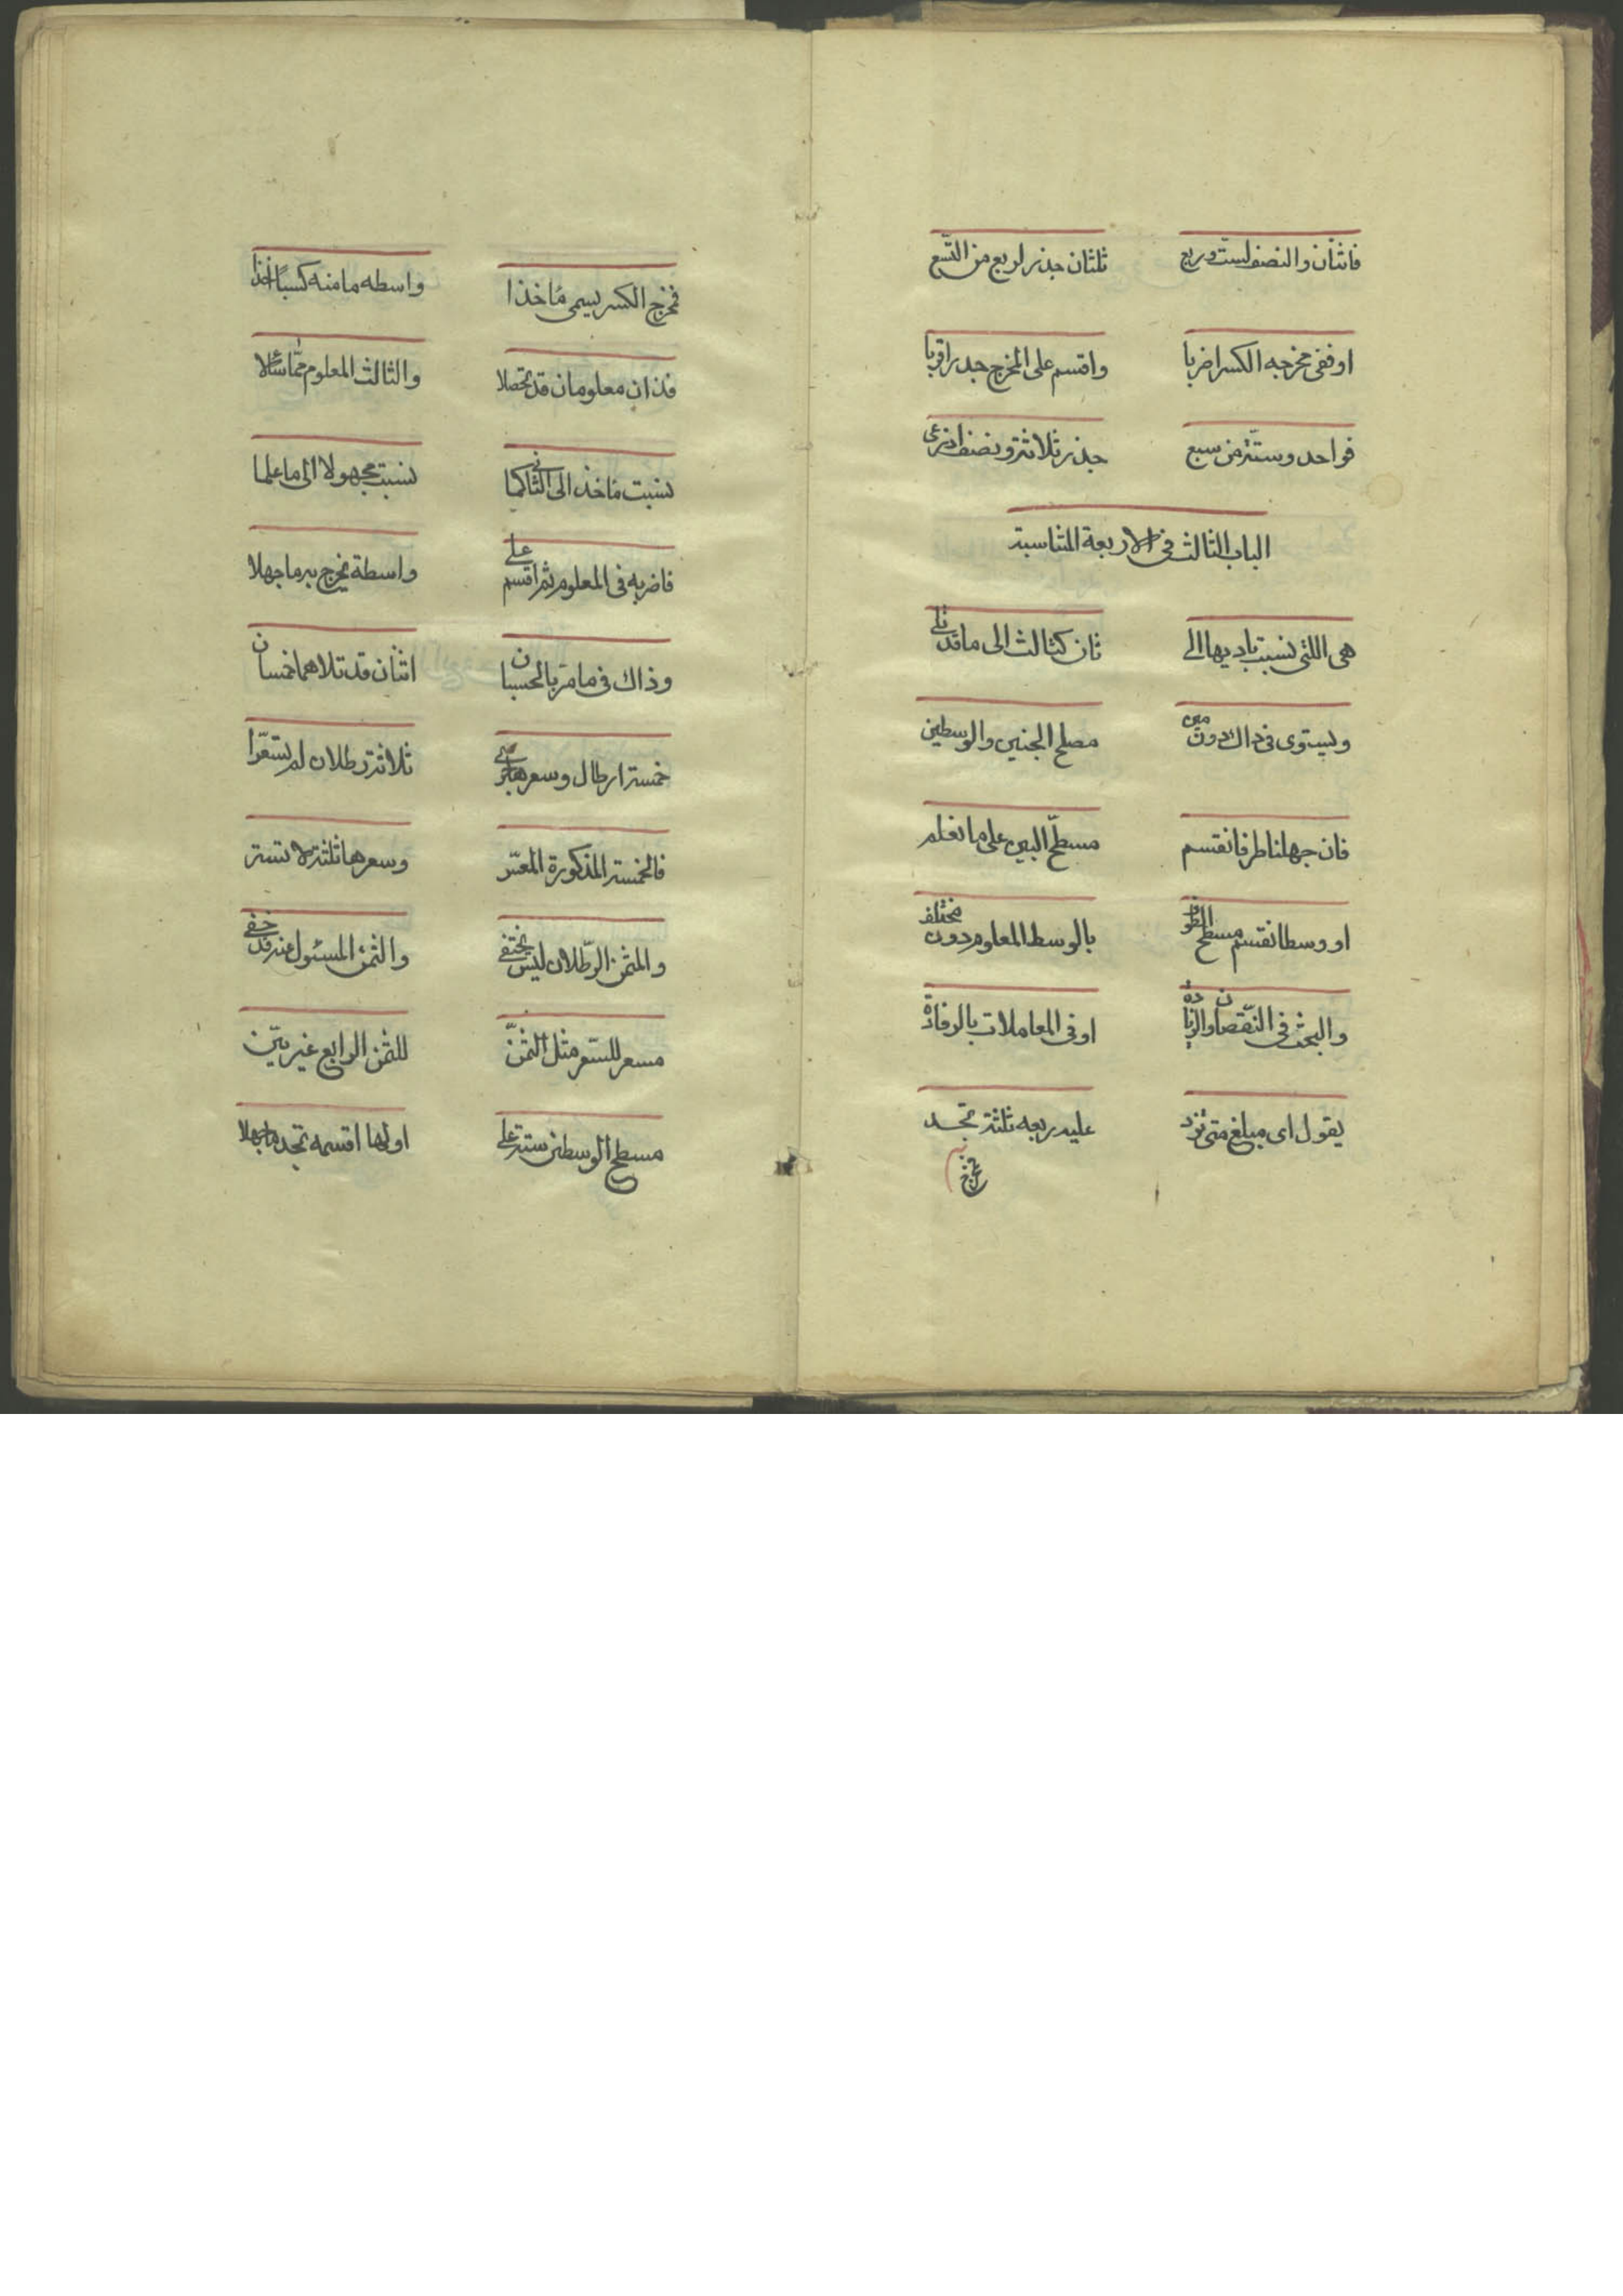 فاثنان والنصف لست وربع ثلثان جذر لربع من التسع
او ففى مخرجه الكسر اضربا واقسم على المخرج جدرا قربا
فواحد وستة من سبع جذر ثلاثة ونصف ادرعى
الباب الثالث فى الاربعة المتناسبة
هى اللتى نسبت باديها الى ثان كثالث الى ما قد تلى
ويستوى فى ذاك دون مين مصلح الجنبين والوسطين
فان جهلنا طرفا نقسم مسطح البين على ما نعلم
او وسطا نقسم مسطح الطرف بالوسط المعلوم دون مختلف
والبحث فى النقصان والزيادة او فى المعاملات بالرفادة
يقول اى مبلغ متى تزد عليه ربعه ثلثة تجد
فمخرج الكسر يسمى ماخذا واسطه ما منه كسبا اخذا
فذان معلومان قد تحصلا والثالث المعلوم مما سئلا
نسبت ماخذ الى الثانى كما نسبت مجهولا الى ما علما
فاضربه فى المعلوم ثم اقسم على واسطة يخرج به ما جهلا
وذاك فى ما مر بالحسبان اثنان قد تلاهما خمسان
خمسة ارطال وسعرها ثلاثة رطلان لم تسعرا
فالخمسة المذكورة المسعر وسعرها ثلثة لا تستر
والمثمن الرطلان ليس يختفى والثمن المسئول عنه قد خفى
مسعر للسعر مثل الثمن للثمن الرابع غير بين
مسطح الوسطين ستة على اولها اقسمه تجد ما جهلا